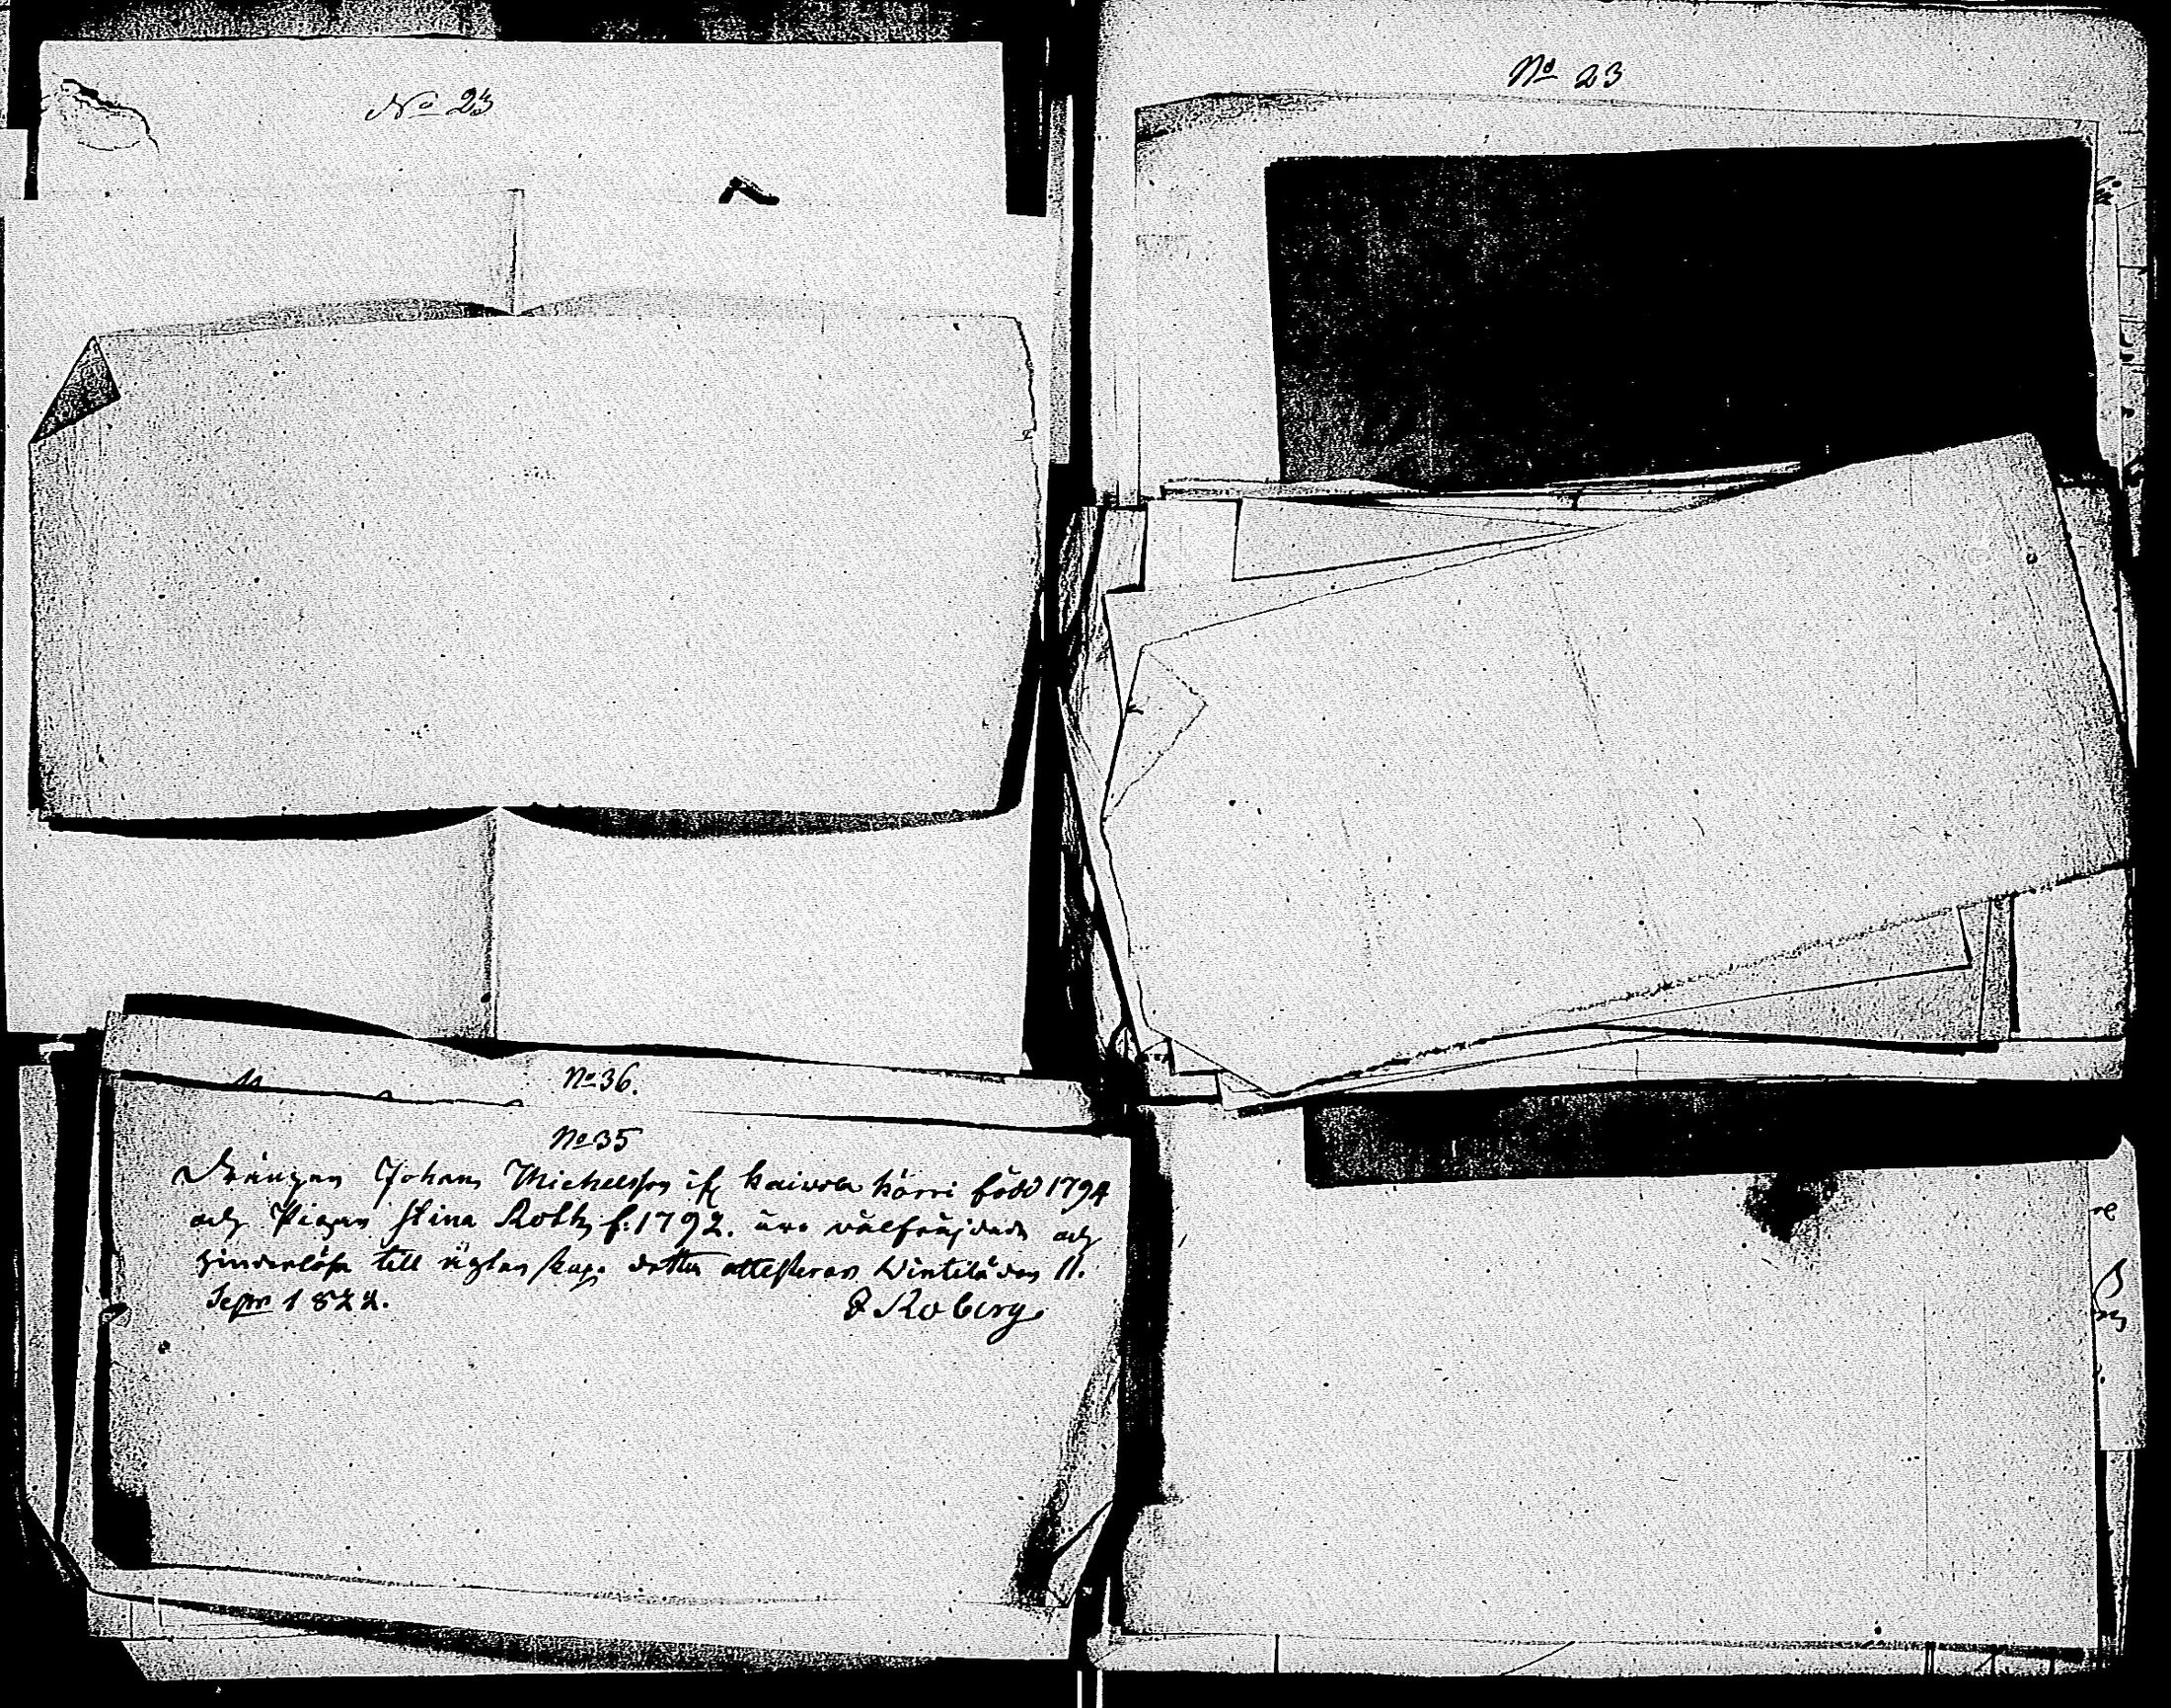 No 23
No 23
No 36.
No 35
Drängen Johan Michelsson ifr. Kaivola Körri född 1794
och Pigan Stina Roth f: 1792. äro välfräjdade och
hinderlösa till ägtenskap. detta attesterar Wintilä den 11.
Sepr 1822.
Roberg